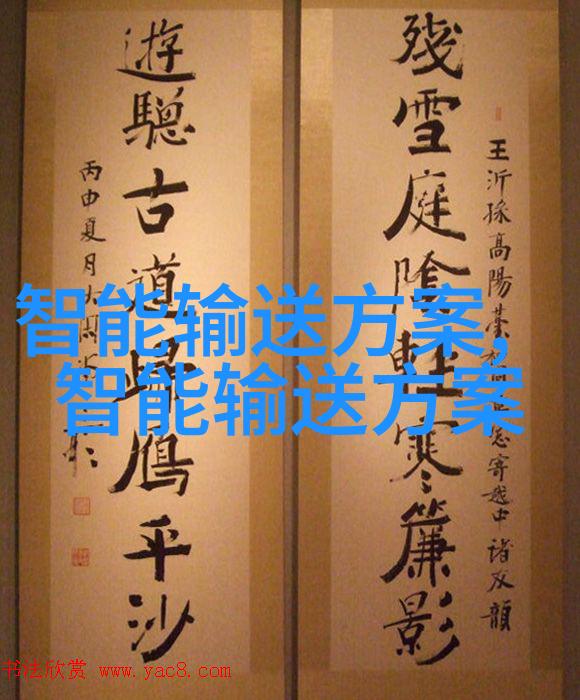 殘雪庭陰輕寒簾影
王沂孫高陽臺 寄越中諸友韻
遊驄古道歸鴈平沙
丙申夏月
智能输送方案,
智能输送方案
书法欣赏 www.yac8.com